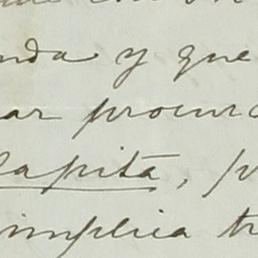 nda y que
ar procur
capita, p
implica tr